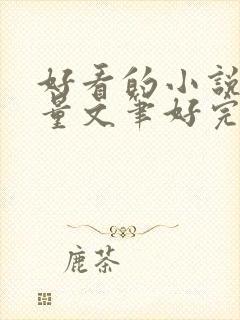 好看的小说
量文笔好完
鹿茶